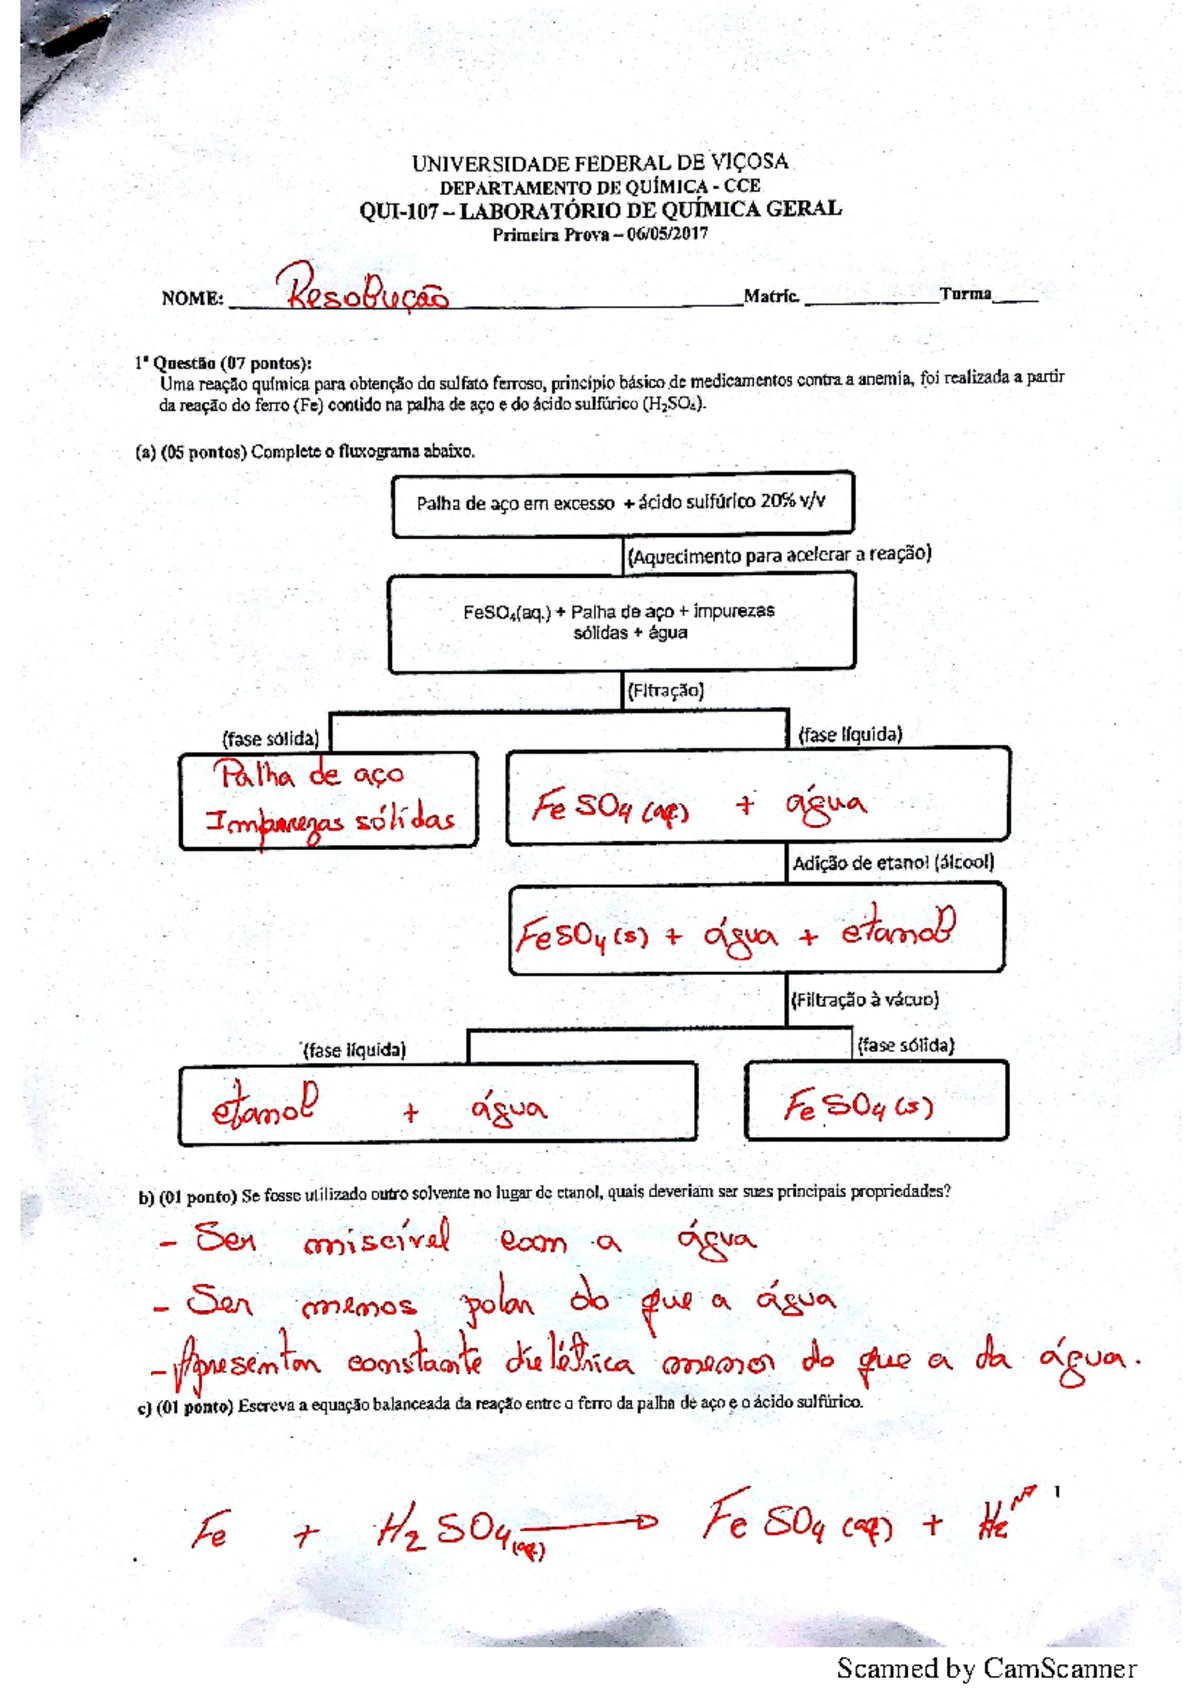 UNIVERSIDADE FEDERAL DE VIÇOSA
DEPARTAMENTO DE QUÍMICA - CCE
QUI-107 – LABORATÓRIO DE QUÍMICA GERAL
Primeira Prova – 06/05/2017
NOME: Resolução Matríc. Turma
1ª Questão (07 pontos):
Uma reação química para obtenção do sulfato ferroso, princípio básico de medicamentos contra a anemia, foi realizada a partir
da reação do ferro (Fe) contido na palha de aço e do ácido sulfúrico (H₂SO₄).
(a) (05 pontos) Complete o fluxograma abaixo.
Palha de aço em excesso + ácido sulfúrico 20% v/v
(Aquecimento para acelerar a reação)
FeSO₄(aq.) + Palha de aço + impurezas
sólidas + água
(Fltração)
(fase sólida) (fase líquida)
Palha de aço
Impurezas sólidas
FeSO4(aq) + água
Adição de etanol (álcool)
FeSO4(s) + água + etanol
(Filtração à vácuo)
(fase líquida) (fase sólida)
etanol + água
FeSO4(s)
b) (01 ponto) Se fosse utilizado outro solvente no lugar de etanol, quais deveriam ser sues principais propriedades?
- Ser miscível com a água
- Ser menos polar do que a água
- Apresentar constante dielétrica menor do que a da água.
c) (01 ponto) Escreva a equação balanceada da reação entre o ferro da palha de aço e o ácido sulfúrico.
1
Fe + H2SO4(aq) → FeSO4(aq) + H2↗
Scanned by CamScanner